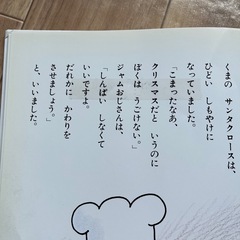 くまの サンタクロースは、
ひどい しもやけに
なっていました。
「こまったなあ、
クリスマスだと いうのに
ぼくは うごけない。」
ジャムおじさんは、
「しんぱい しなくて
いいですよ。
だれかに かわりを
させましょう。」
と、いいました。